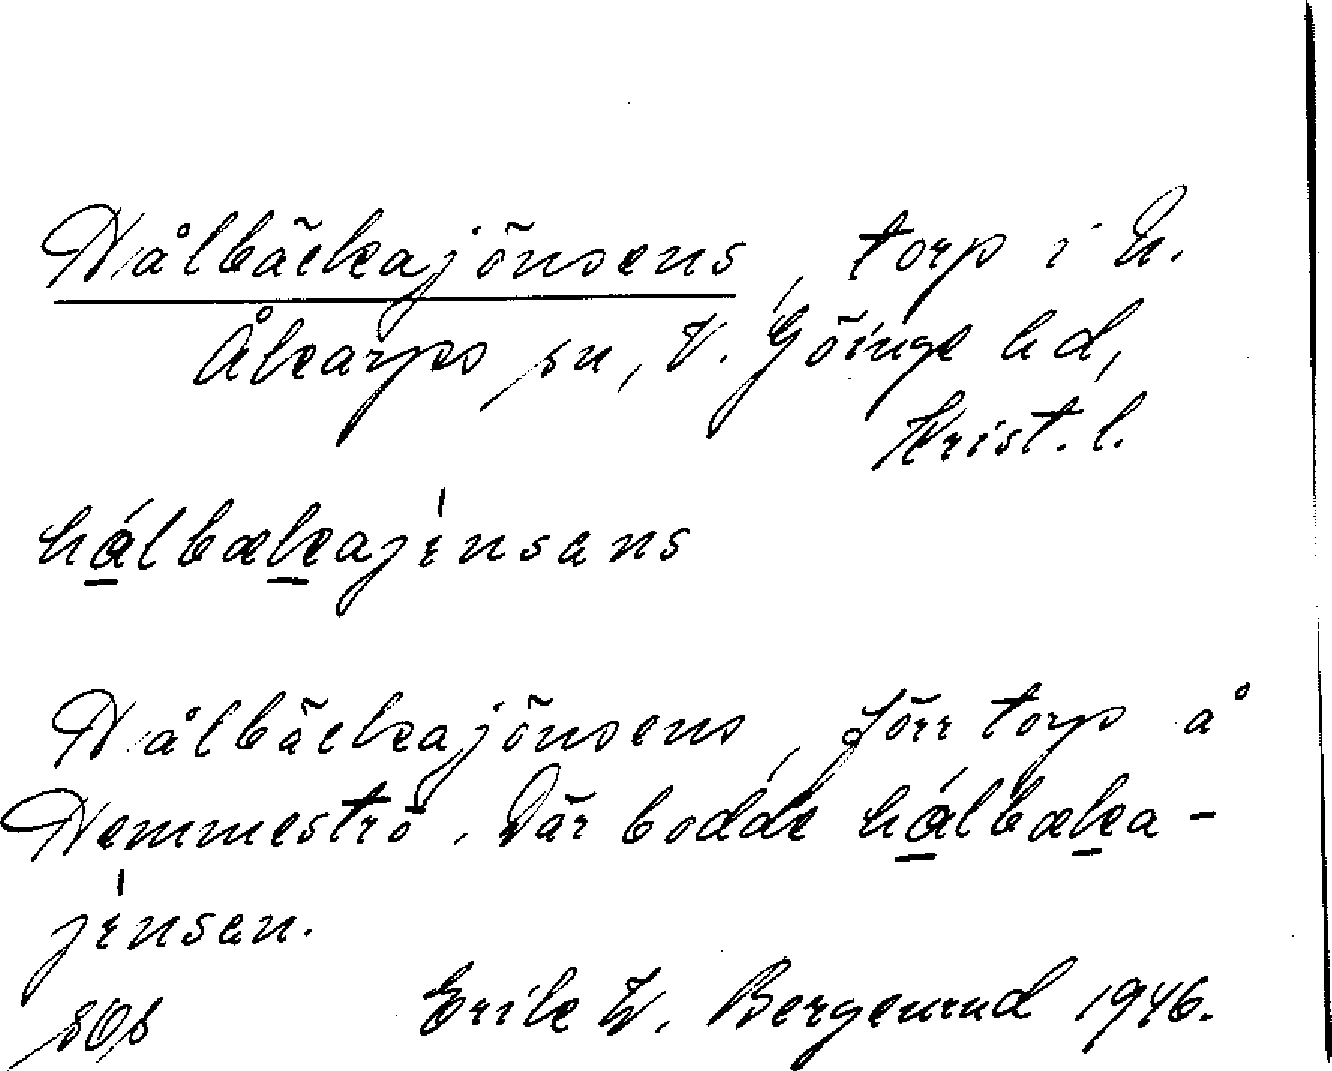 Hålbäckajönsens, torp i N.
Åkarps sn, V. Göinge hd,
Krist. l.
hálbækajènsans
Hålbäckajönsens, förr torp å
Hemmeströ. Där bodde hálbæka-
jènsan.
Erik W. Bergenrud 1946.